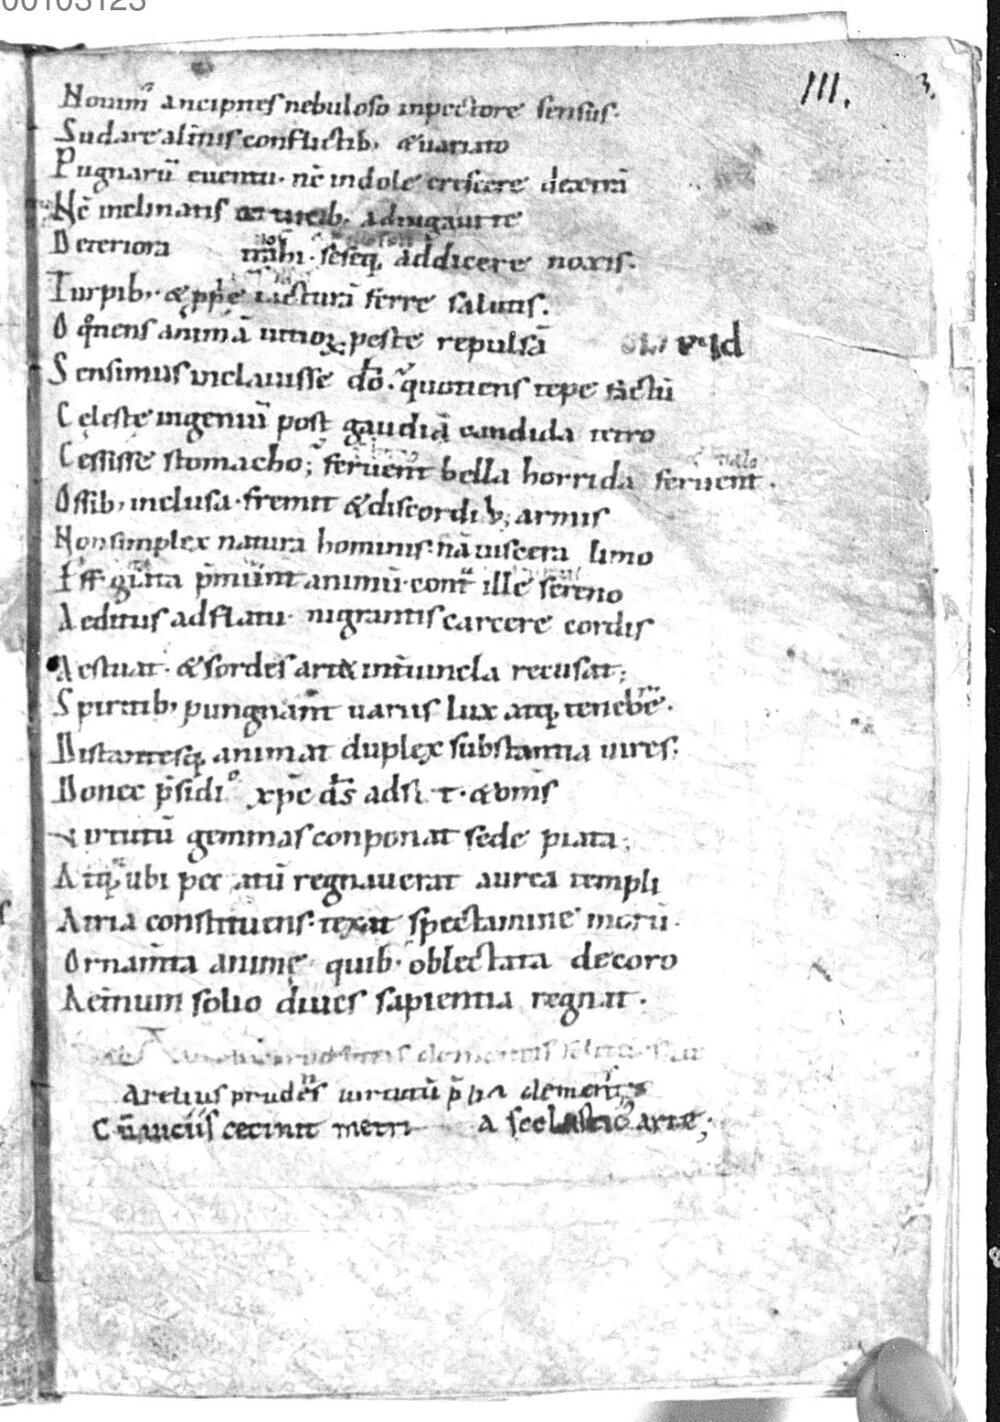 00103123
III. 3.
Nouim⁹ ancipites nebuloso inpectore sensus.
Sudare alt̄nis conflictib; & uariato
Pugnarū euentu. nc̄ indole crescere dextrā
Nc̄ inclinatis
Deteriora trahi. seseq; addicere noxis.
Turpib; & ꝓp̄e iacturā ferre salutis.
O q̊tiens animā uitioꝝ peste repulsā
Sensimus incaluisse dō. quotiens tepe factū
Cęleste ingeniū post gaudia candida tetro
Cessisse stomacho; feruent bella horrida feruent.
Ossib; inclusa. fremit & discordib; armis
Non simplex natura hominis. nā uiscera limo
Eff. p̄munt animū. cont̄ ille sereno
Aeditus adflatu. nigrantis carcere cordis
Aestuat. & sordes arta int̄ uincla recusat;
Spiritib; pungnant uariis lux atq; tenebrę.
Distantesq; animat duplex substantia uires.
Donec p̄sidio xp̄c d̄s adsit. & om̄s
Virtutū gemmas conponat sede piata;
Atq; ubi peccatū regnauerat aurea templi
Atria constituens. texat spectamine morū.
Ornam̄ta animę. quib; oblectata decoro
Aet̄num solio diues sapientia regnat.
clementis
Arelius prudens uirtutū p̄lia clemens
Cū uiciis cecinit metri a scolastic⁹ arte;